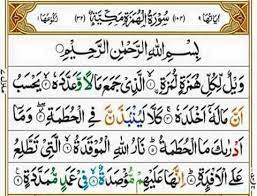 اٰيَاتُهَا ٩ (١٠٤) سُوْرَةُ الْهُمَزَةِ مَكِّيَّةٌ (٣٢) رُكُوْعُهَا
بِسْمِ اللّٰهِ الرَّحْمٰنِ الرَّحِيْمِ
وَيْلٌ لِّكُلِّ هُمَزَةٍ لُّمَزَةِ ۙ الَّذِيْ جَمَعَ مَالًا وَّعَدَّدَهٗ ۙ يَحْسَبُ
اَنَّ مَالَهٗٓ اَخْلَدَهٗ ۚ كَلَّا لَيُنْۢبَذَنَّ فِي الْحُطَمَةِ ۖ وَمَآ
اَدْرٰىكَ مَا الْحُطَمَةُ ؕ نَارُ اللّٰهِ الْمُوْقَدَةُ ۙ الَّتِيْ تَطَّلِعُ
عَلَى الْاَفْـِٕدَةِ ؕ اِنَّهَا عَلَيْهِمْ مُّؤْصَدَةٌ ۙ فِيْ عَمَدٍ مُّمَدَّدَةٍ